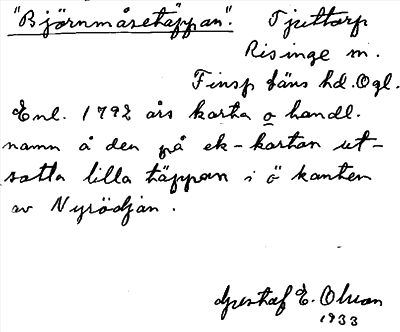 "Björnmåsetäppan". Tjuttorp
Risinge sn.
Finsp läns hd. Ögl.
Enl. 1792 års karta o handl.
namn å den på ek-kartan ut-
satta lilla täppan i ö kanten
av Nyrödjan.
Gustaf E. Olson
1933